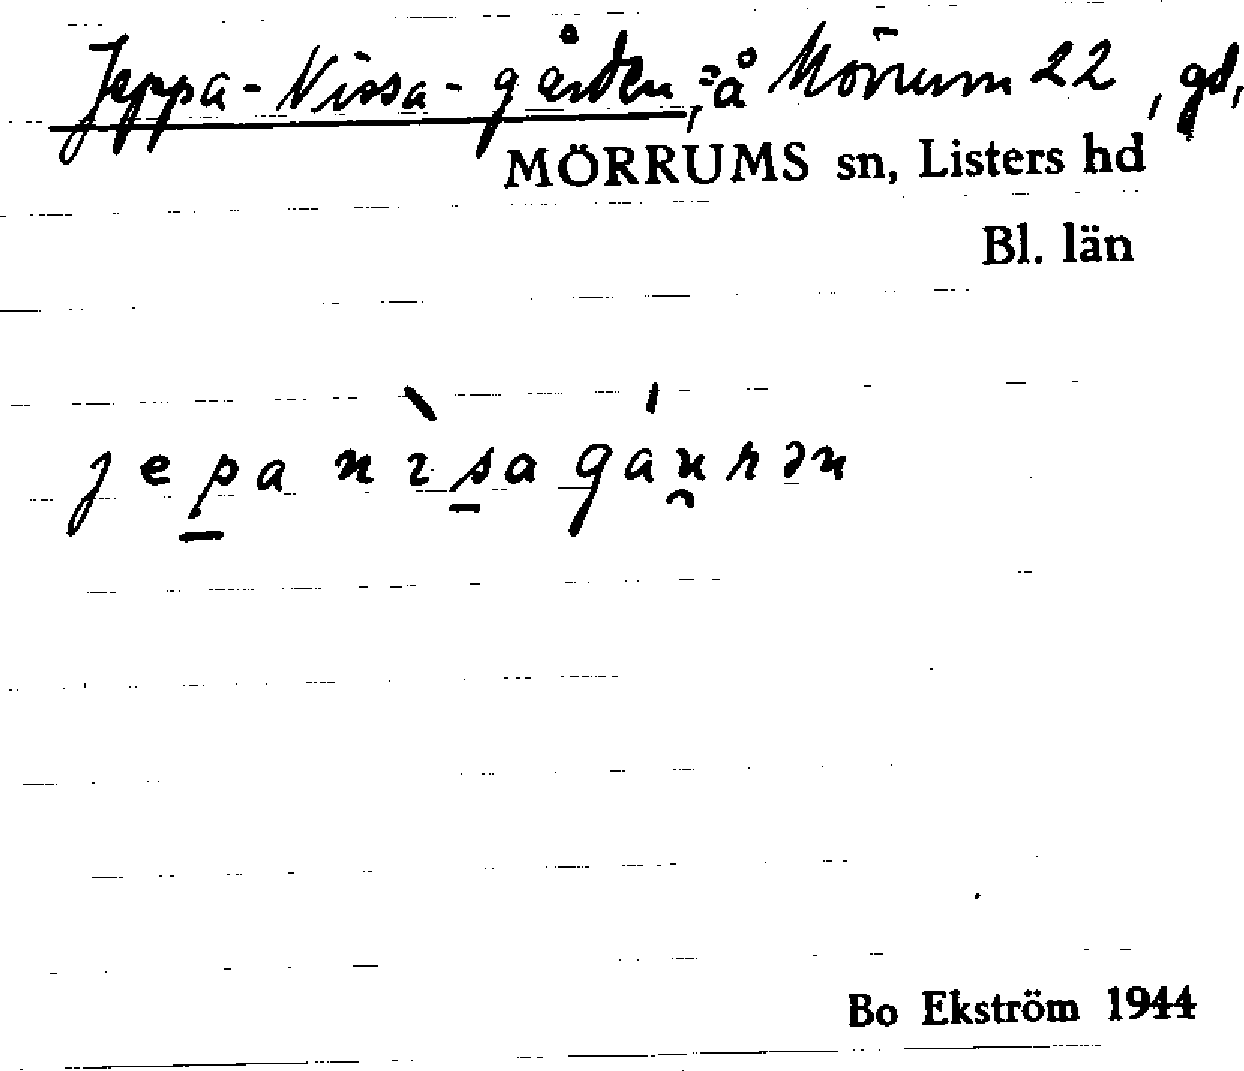 Jeppa-Nissa-gården, =å Mörrum 22, gd,
MÖRRUMS sn, Listers hd
Bl. län
jepa nìsa gáu̯rən
Bo Ekström 1944